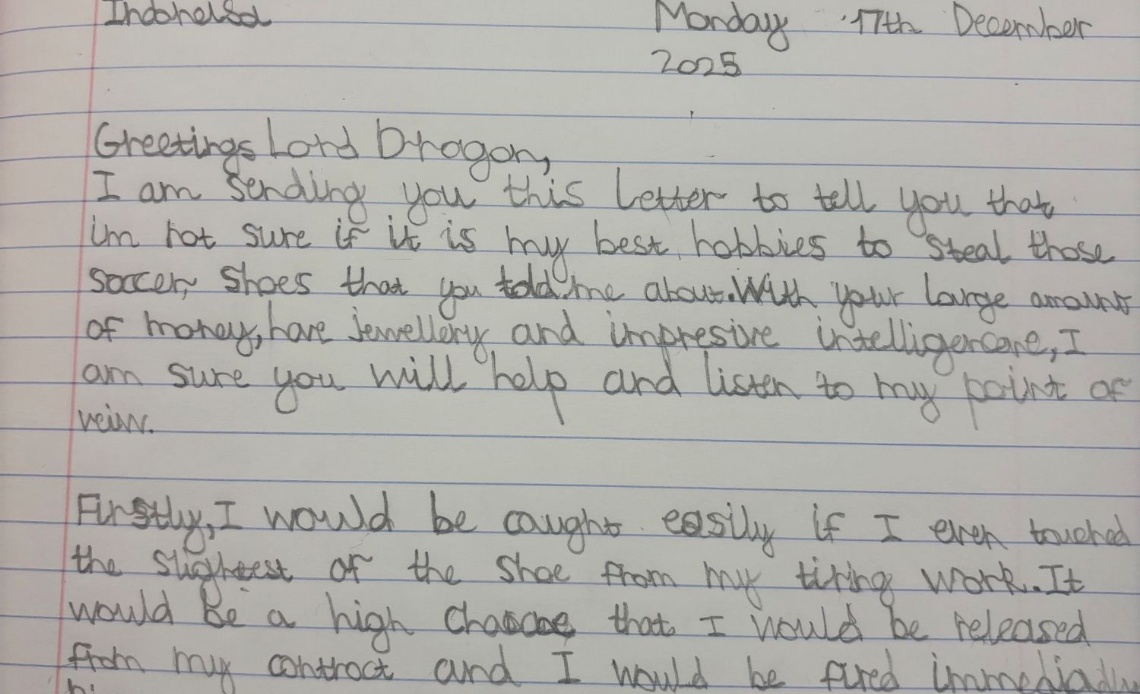 Indonesia Monday 17th December
2025
Greetings Lord Dragon,
I am sending you this letter to tell you that
im not sure if it is my best hobbies to steal those
soccer shoes that you told me about. With your large amount
of money, have jewellery and impresive intelligencone, I
am sure you will help and listen to my point of
veiw.
Firstly, I would be caught easily if I even touched
the slightest of the shoe from my tiring work. It
would be a high chance that I would be released
from my contract and I would be fired